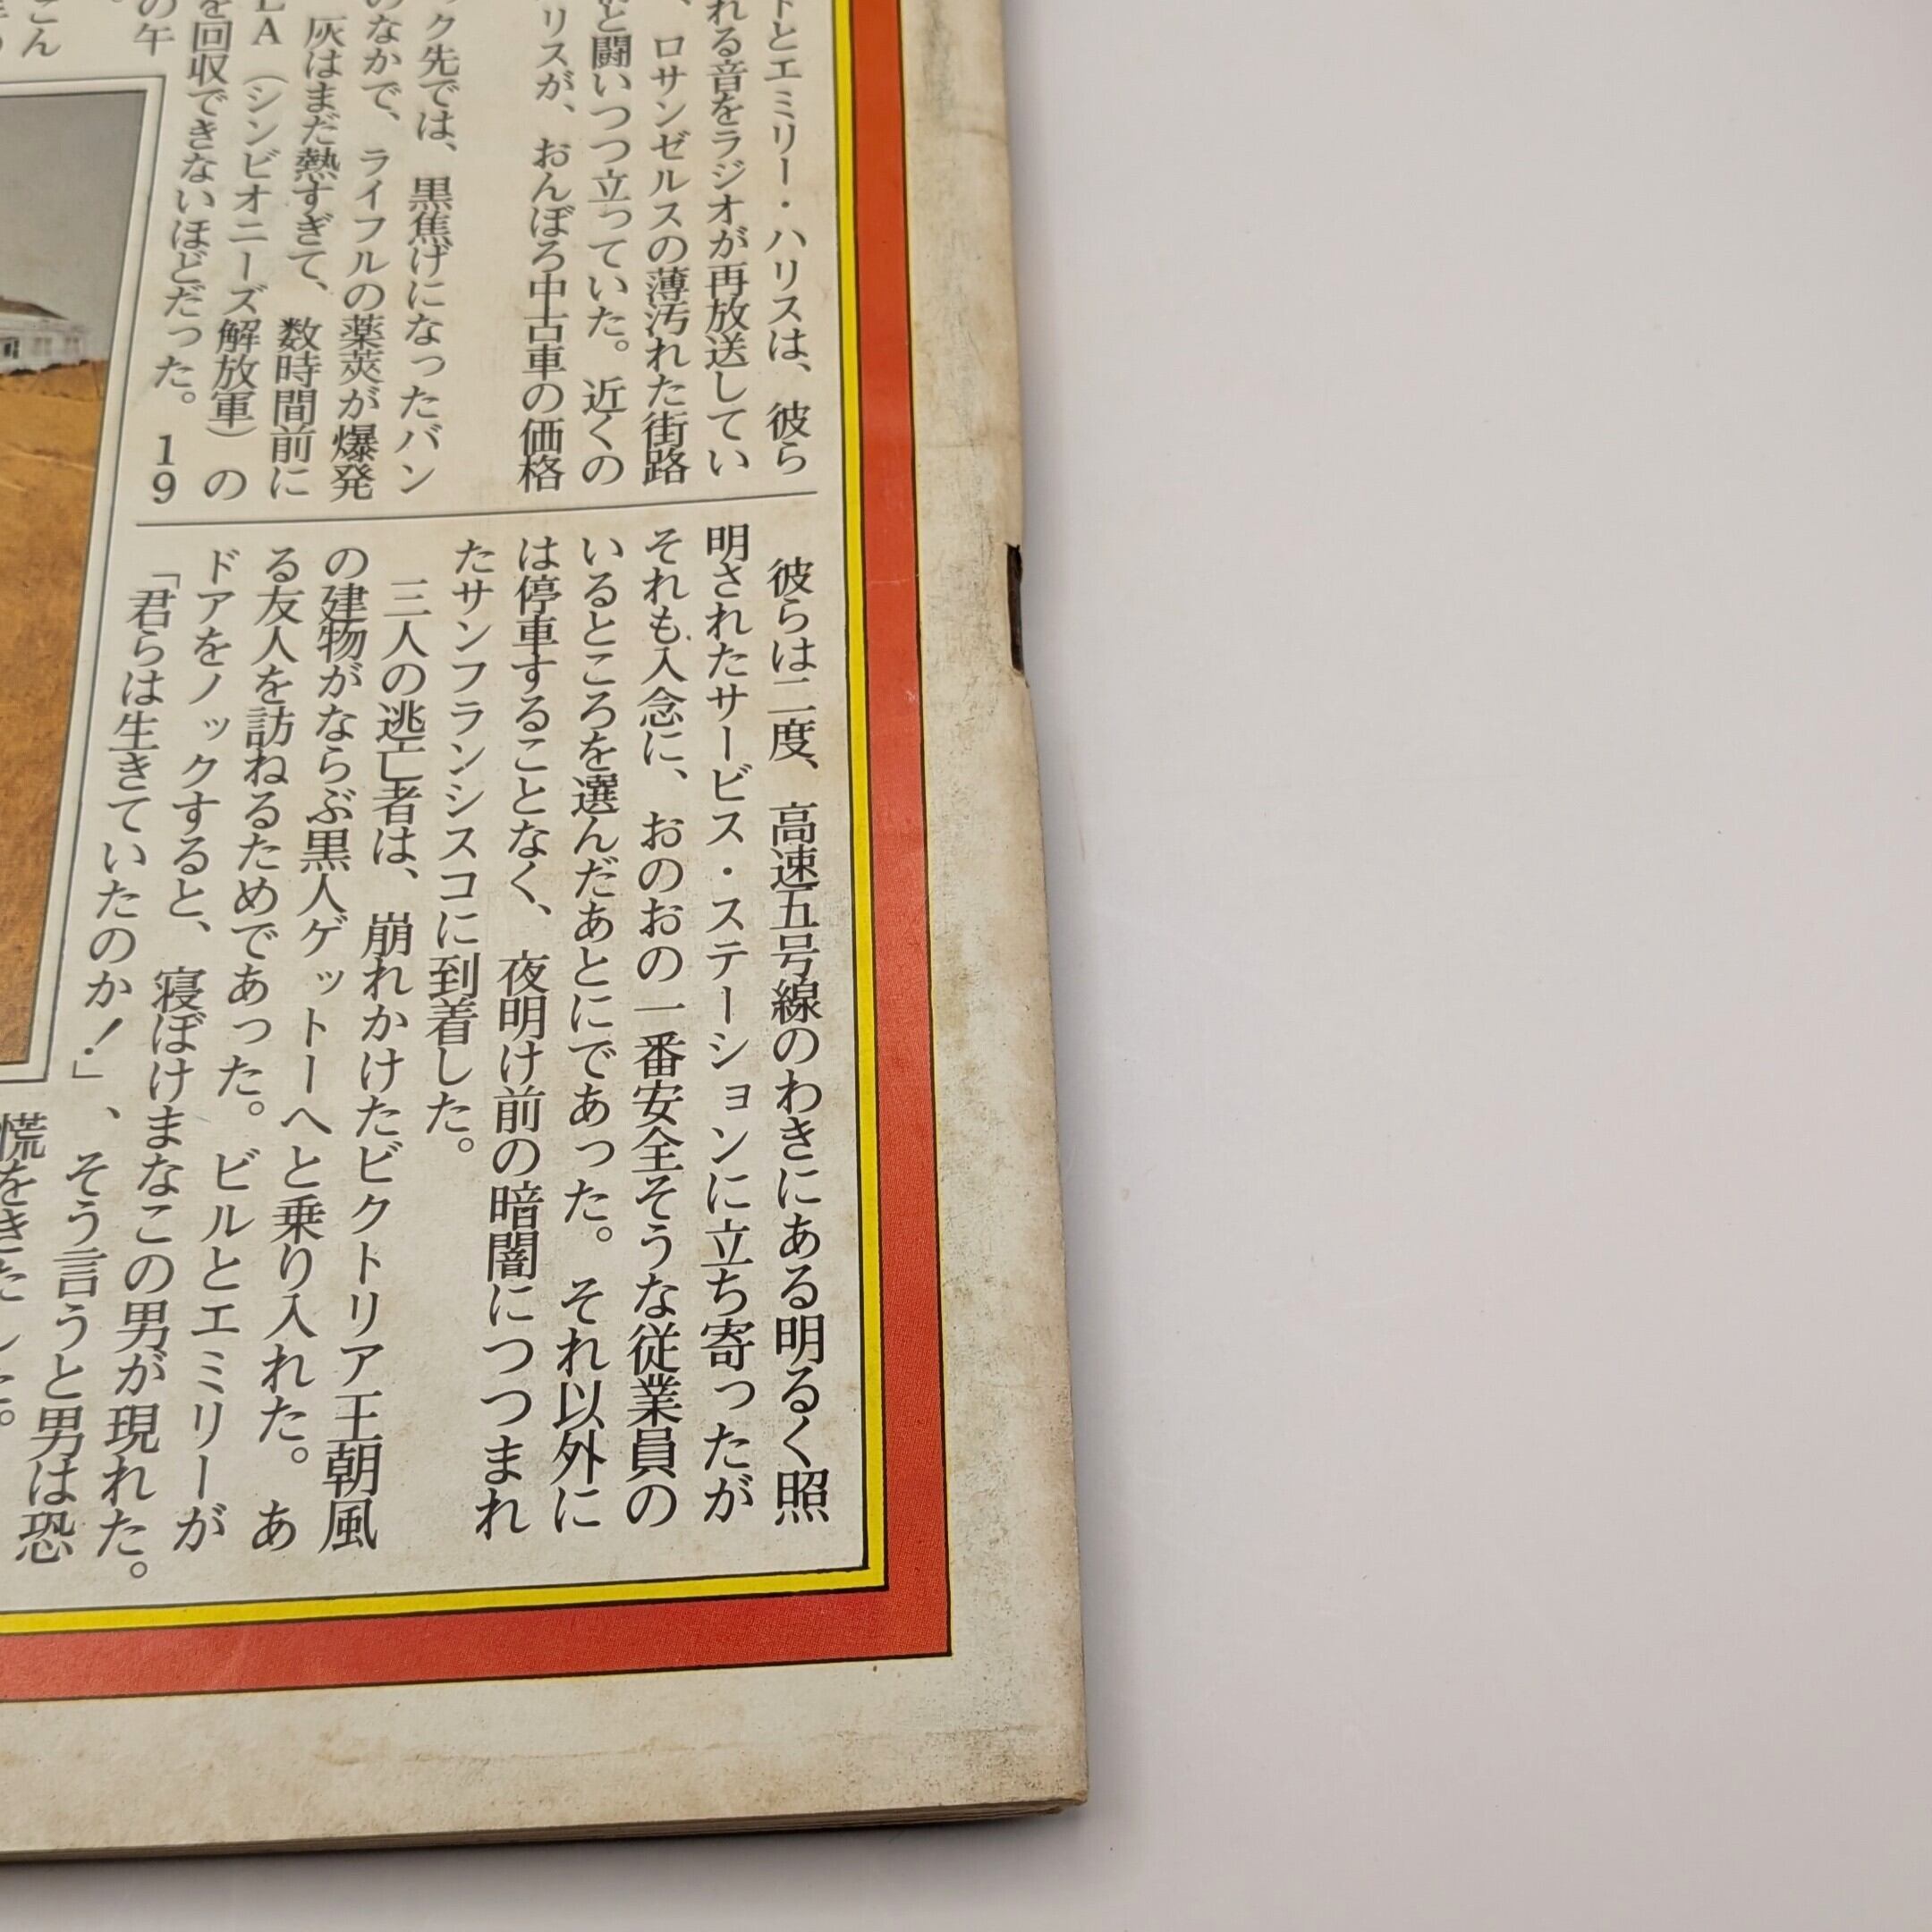 トとエミリー・ハリスは、彼ら
れる音をラジオが再放送してい
、ロサンゼルスの薄汚れた街路
と闘いつつ立っていた。近くの
リスが、おんぼろ中古車の価格
ク先では、黒焦げになったバン
のなかで、ライフルの薬莢が爆発
灰はまだ熱すぎて、数時間前に
LA（シンビオニーズ解放軍）の
を回収できないほどだった。19
の午
こん
彼らは二度、高速五号線のわきにある明るく照
明されたサービス・ステーションに立ち寄ったが
それも入念に、おのおの一番安全そうな従業員の
いるところを選んだあとにであった。それ以外に
は停車することなく、夜明け前の暗闇につつまれ
たサンフランシスコに到着した。
三人の逃亡者は、崩れかけたビクトリア王朝風
の建物がならぶ黒人ゲットーへと乗り入れた。あ
る友人を訪ねるためであった。ビルとエミリーが
ドアをノックすると、寝ぼけまなこの男が現れた。
「君らは生きていたのか！」、そう言うと男は恐
慌をきたした。